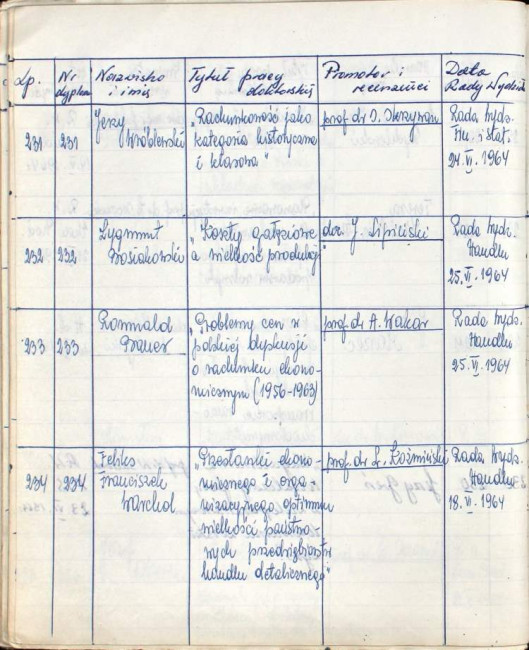 Lp. Nr dyplomu Nazwisko i imię Tytuł pracy doktorskiej Promotor i recenzenci Data Rady Wydziału
231 231 Jerzy Wróblewski „Rachunkowość jako kategoria historyczna i klasowa" prof. dr S. Skrzywan Rada Wydz. Fin. i Stat. 24.VI.1964
232 232 Zygmunt Bosiakowski „Koszty gałęziowe a wielkość produkcji" doc. J. Lipiński Rada Wydz. Handlu 25.VI.1964
233 233 Romuald Bauer „Problemy cen w polskiej dyskusji o rachunku ekonomicznym (1956-1963) prof. dr A. Wakar Rada Wydz. Handlu 25.VI.1964
234 234 Feliks Franciszek Warchoł „Przesłanki ekonomicznego i organizacyjnego optimum wielkości państwowych przedsiębiorstw handlu detalicznego" prof. dr L. Koźmiński Rada Wydz. Handlu 18.VI.1964